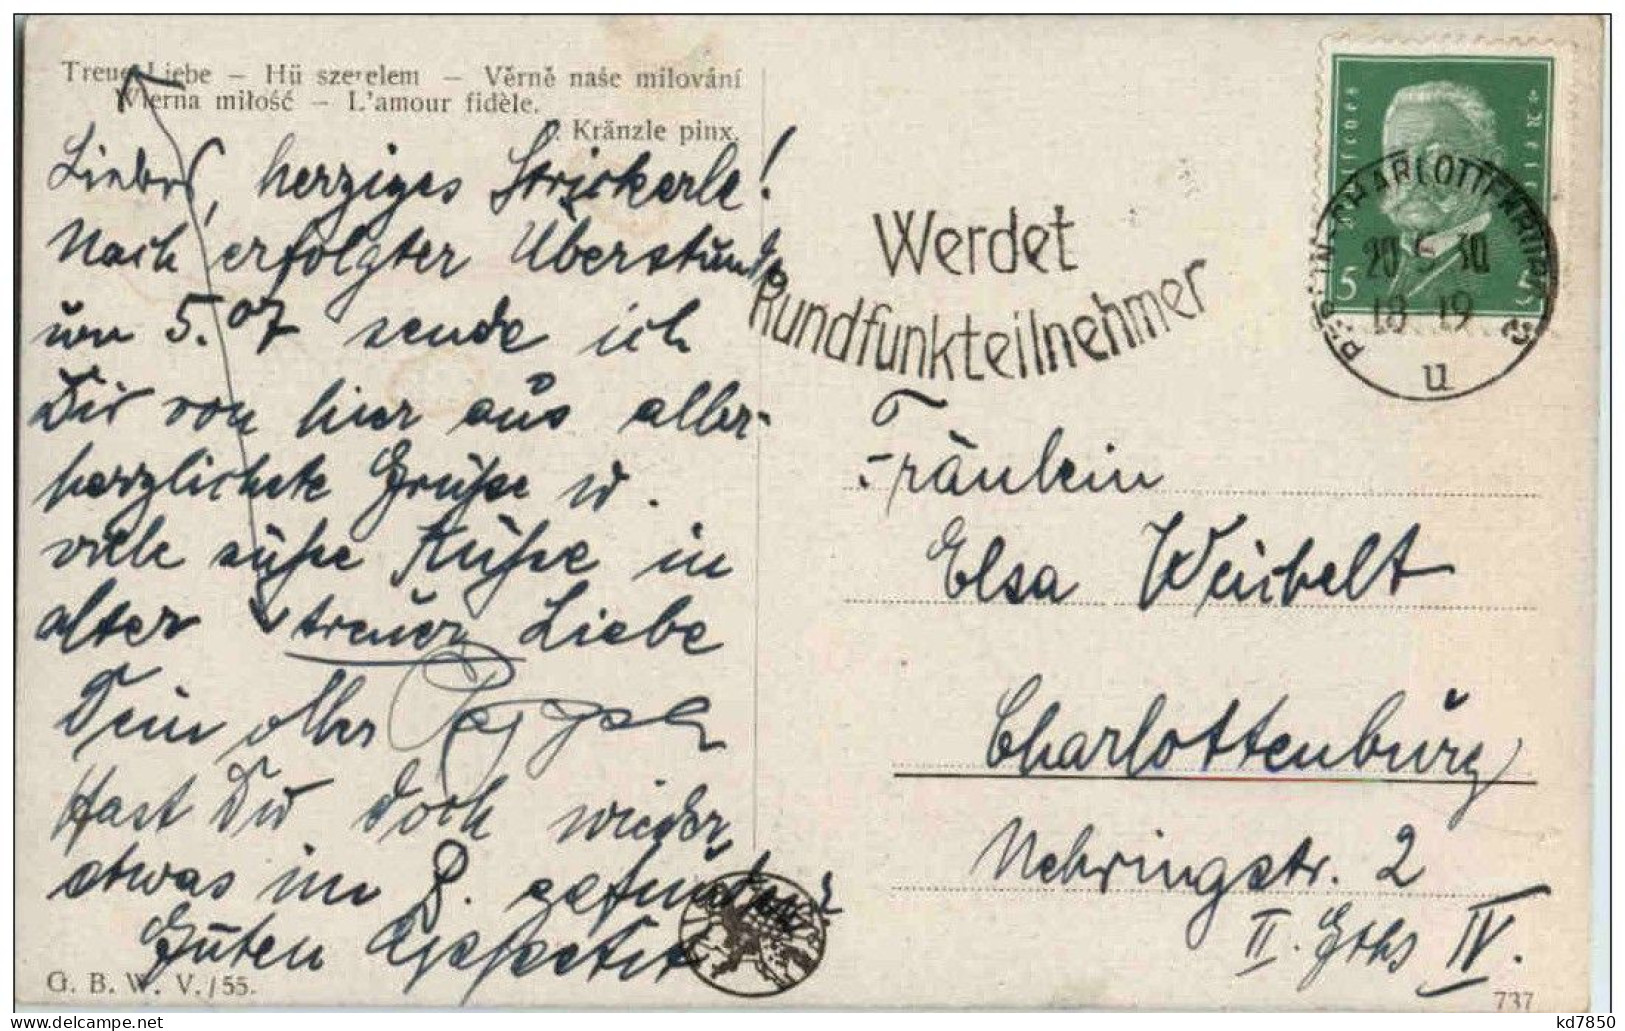 Treue Liebe – Hü szerelem – Věrně naše milování
Wierna miłość – L'amour fidèle.
Kränzle pinx.
Liebes, herziges Strickerle!
Nach erfolgter Überstunde
um 5.07 sende ich
Dir von hier aus aller-
herzlichste Grüße u.
viele süße Küsse in
alter treuer Liebe
Dein oller
Hast Du doch wieder
etwas im B. gefunden?
Guten Appetit
G. B. W. V./55.
Werdet
Rundfunkteilnehmer
5 5
BERLIN-CHARLOTTENBURG 2
20 5 30
18 19
u
Fräulein
Elsa Weibelt
Charlottenburg
Nehringstr. 2
II. Gths IV.
737
kd7850